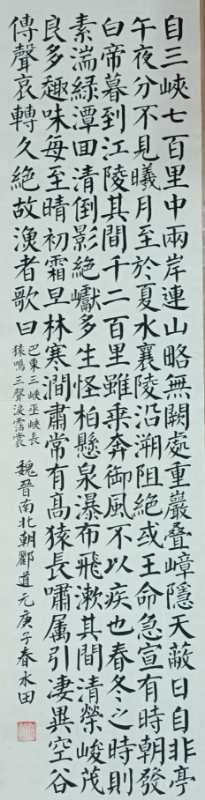 自三峽七百里中兩岸連山略無闕處重巖疊嶂隱天蔽日自非亭
午夜分不見曦月至於夏水襄陵沿溯阻絕或王命急宣有時朝發
白帝暮到江陵其間千二百里雖乗奔御風不以疾也春冬之時則
素湍綠潭回清倒影絕巘多生怪柏懸泉瀑布飛漱其間清榮峻茂
良多趣味每至晴初霜旦林寒澗肅常有高猿長嘯属引凄異空谷
傳聲哀轉久絕故漁者歌曰
巴東三峽巫峽長
猿鳴三聲淚霑裳
魏晉南北朝酈道元庚子春水田